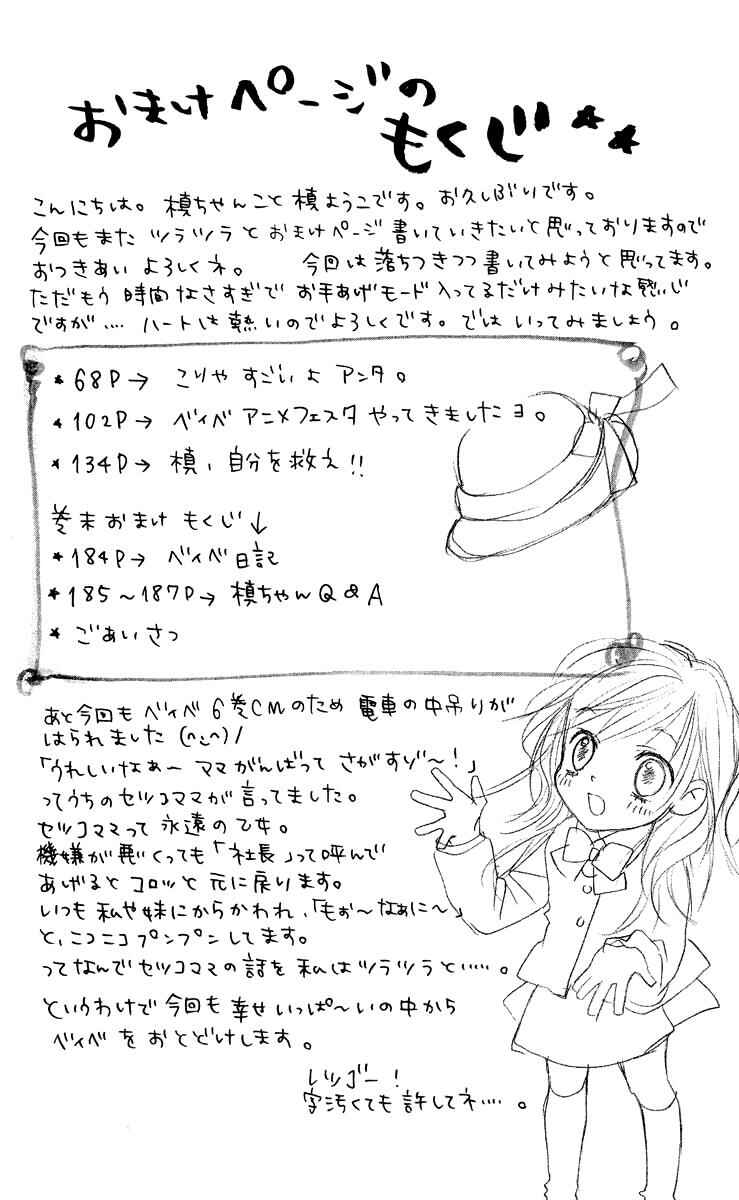 おまけページの
もくじ★★
こんにちは。槙ちゃんこと槙ようこです。お久しぶりです。
今回もまたツラツラとおまけページ書いていきたいと思っておりますので
おつきあいよろしくネ。 今回は落ちつきつつ書いてみようと思ってます。
ただもう時間なさすぎでお手あげモード入ってるだけみたいな感じ
ですが…. ハートは熱いのでよろしくです。ではいってみましょう。
★68P→ こりゃすごいよアンタ。
★102P→ ベイベアニメフェスタやってきましたヨ。
★134P→ 槙、自分を救え!!
巻末おまけもくじ↓
★184P→ ベイベ日記
★185〜187P→ 槙ちゃんQ&A
★ごあいさつ
あと今回もベイベ6巻CMのため電車の中吊りが
はられました(^ー^)/
「うれしいなぁ〜ママがんばってさがすゾ〜!」
ってうちのセツコママが言ってました。
セツコママって永遠の乙女。
機嫌が悪くっても「社長」って呼んで
あげるとコロッと元に戻ります。
いつも私や妹にからかわれ、「もぉ〜なぁに〜」
と、ニコニコプンプンしてます。
ってなんでセツコママの話を私はツラツラと…..。
というわけで今回も幸せいっぱ〜いの中から
ベイベをおとどけします。
レッゴー!
字汚くても許してネ….。